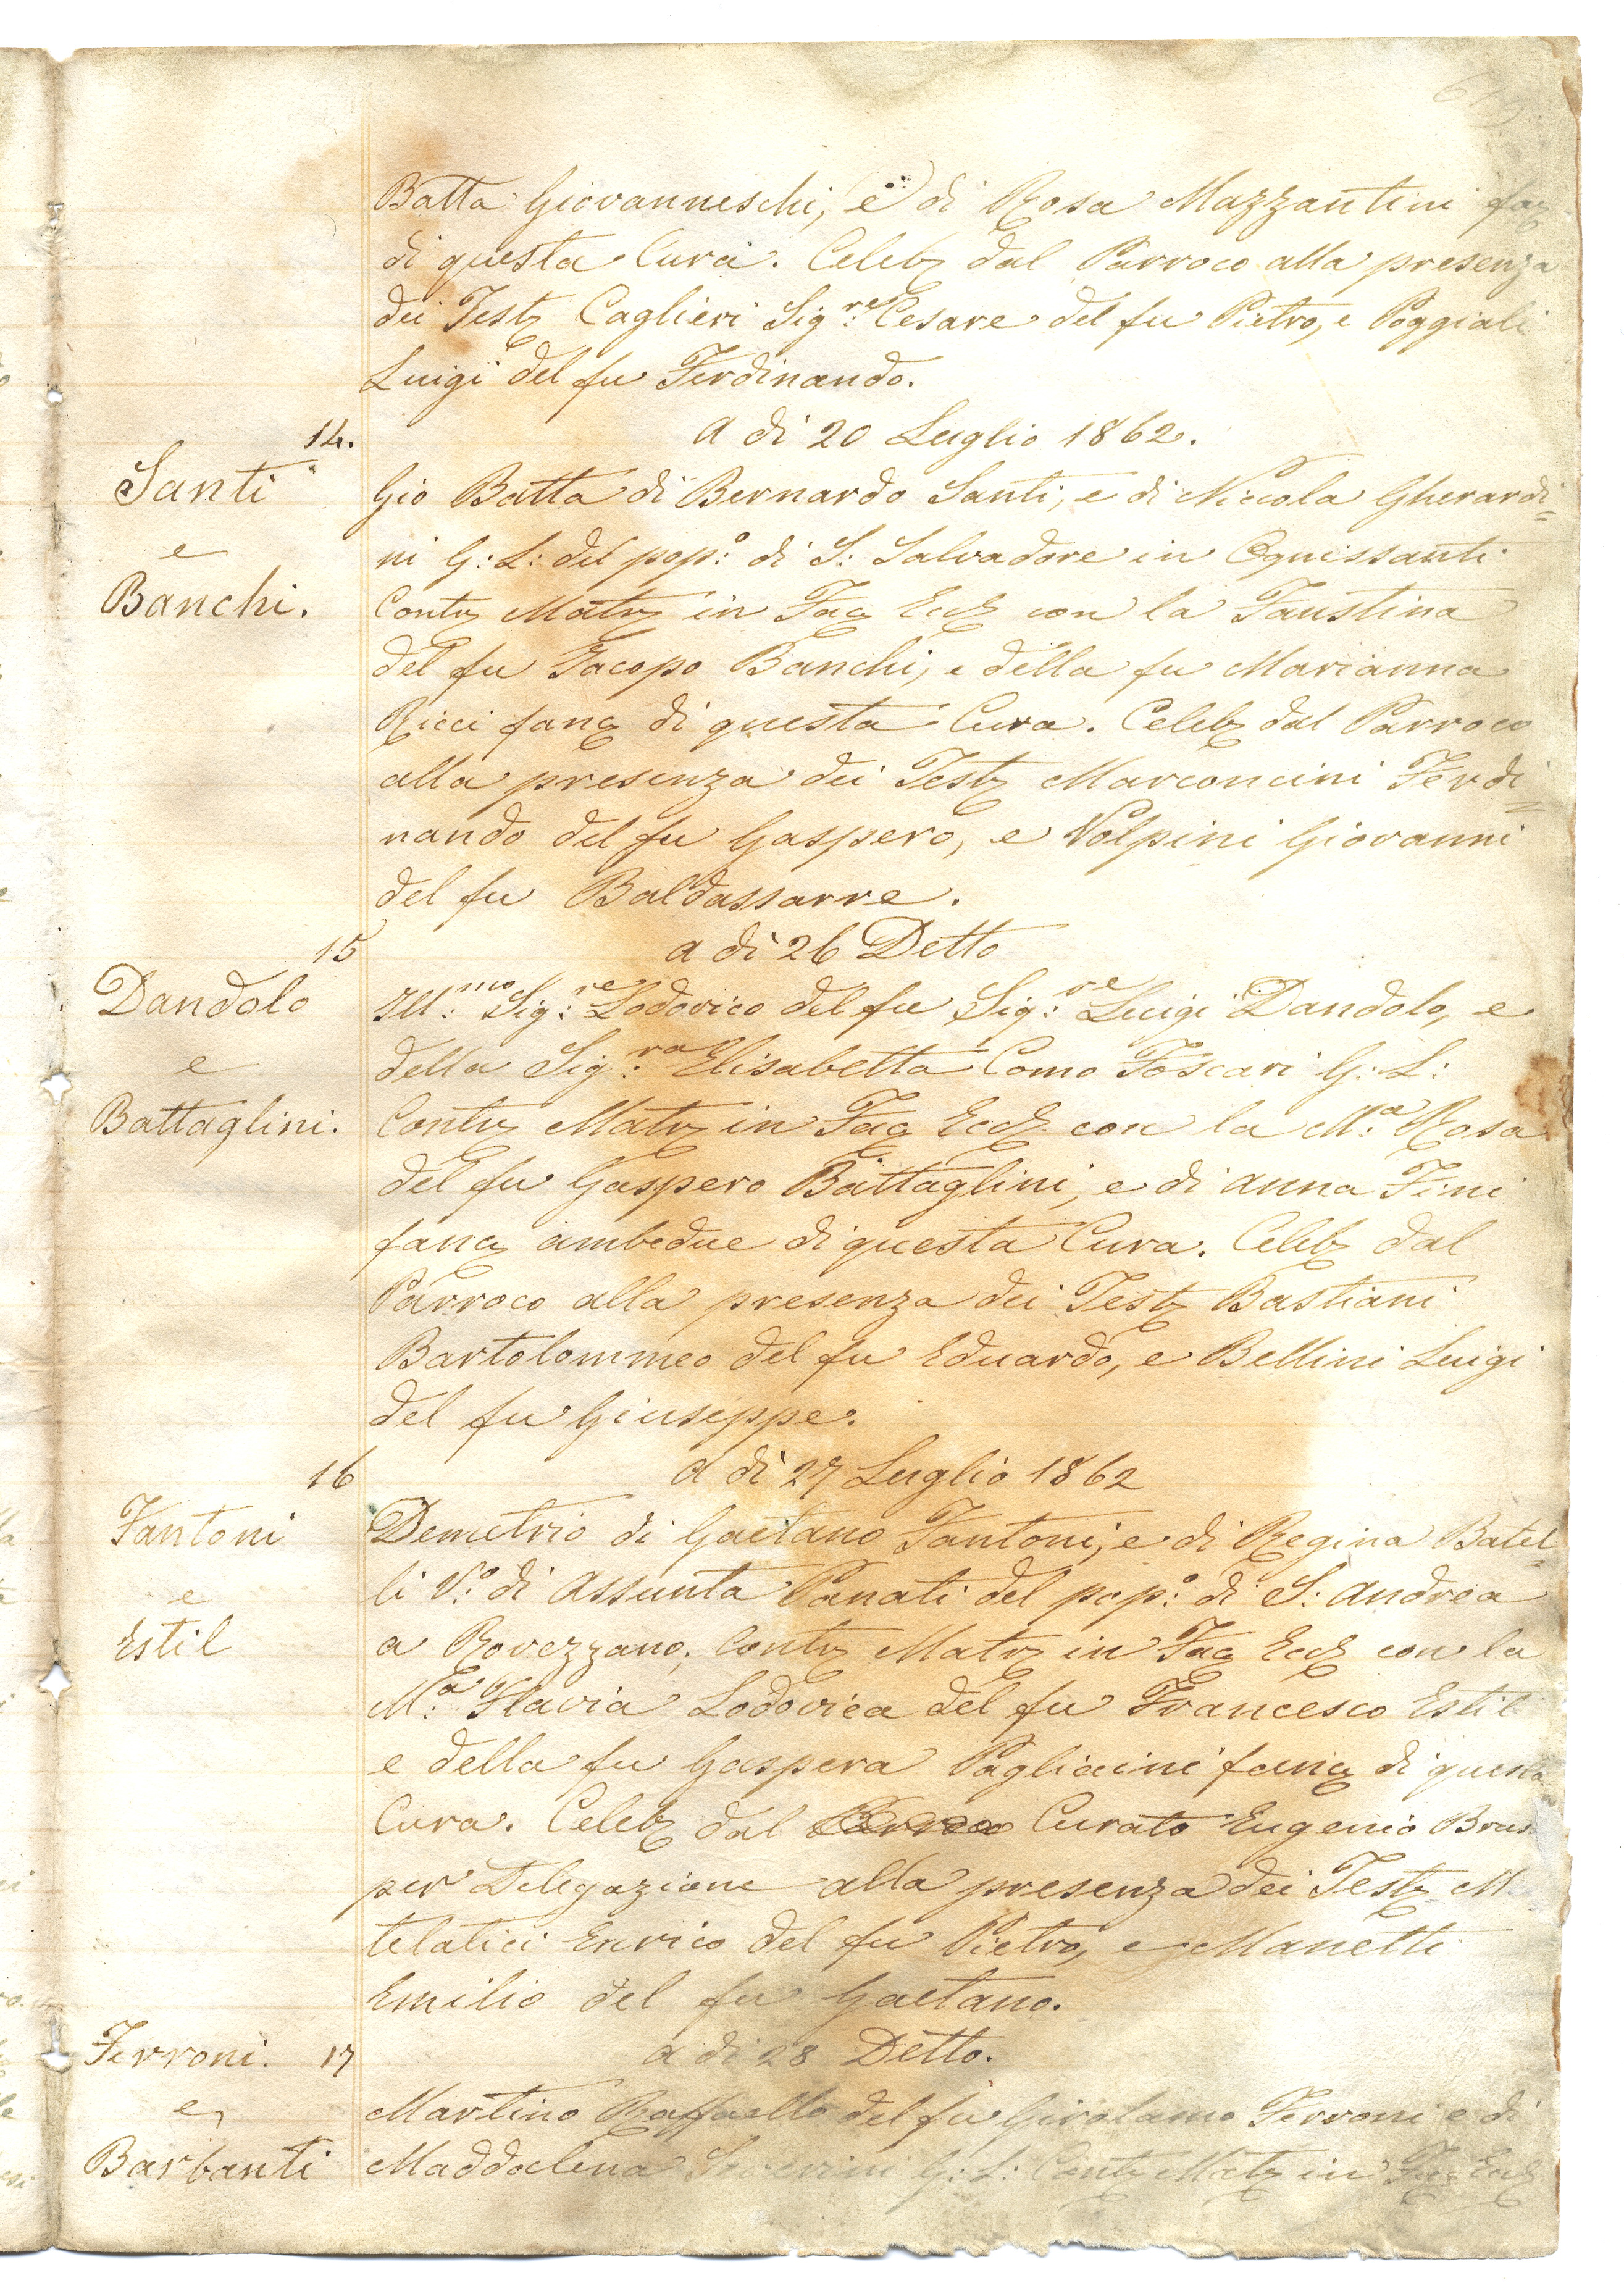 Batta Giovanneschi, e di Rosa Mazzantini
di questa Cura. Celeb dal Parroco alla presenza
dei Test Caglieri Sig:re Cesare del fu Pietro, e Poggiali
Luigi del fu Ferdinando.
14.
A di 20 Luglio 1862.
Santi
e
Banchi.
Gio Batta di Bernardo Santi, e di Niccola Gherardi=
ni G: L: del pop:o di S: Salvadore in Ognissanti
Contr Matr in Fac Eccl con la Faustina
del fu Jacopo Banchi, e della fu Marianna
Ricci fanc di questa Cura. Celeb dal Parroco
alla presenza dei Test Marconcini Ferdi=
nando del fu Gaspero, e Volpini Giovanni
del fu Baldassarre.
15
a di 26 Detto
Dandolo
e
Battaglini.
Ill:mo Sig:re Lodovico del fu Sig:re Luigi Dandolo, e
della Sig:ra Elisabetta Como Foscari G: L:
Contr Matr in Fac Eccl con la M:a Rosa
del fu Gaspero Battaglini, e di Anna Fini
fanc ambedue di questa Cura. Celeb dal
Parroco alla presenza dei Test Bastiani
Bartolommeo del fu Eduardo, e Bellini Luigi
del fu Giuseppe.
16
A di 27 Luglio 1862
Fantoni
e
Estil
Demetrio di Gaetano Fantoni, e di Regina Batel=
li V:o di Assunta Panati del pop:o di S: Andrea
a Rovezzano, Contr Matr in Fac Eccl con la
M:a Flavia Lodovica del fu Francesco Estil
e della fu Gaspera Pagliaini fanc di questa
Cura. Celeb dal Curato Eugenio
per Delegazione alla presenza dei Test
telatici Enrico del fu Pietro, e Manetti
Emilio del fu Gaetano.
Ferroni. 17
e
Barbanti
a di 28 Detto.
Martino Raffaello del fu Girolamo Ferroni e di
Maddalena G: L: Contr Matr in Fac Eccl